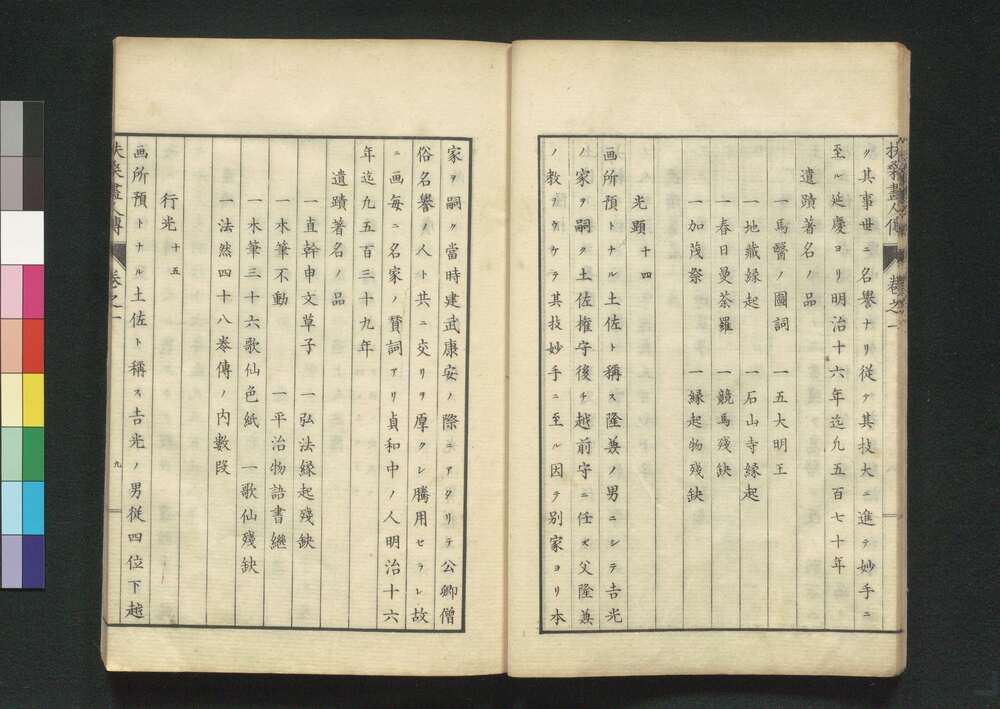 扶桑畫人傳 巻之一
ク其事世ニ名譽ナリ従テ其技大ニ進テ妙手ニ
至ル延慶ヨリ明治十六年迄凢五百七十年
遺蹟著名ノ品
一馬醫ノ圖詞 一五大明王
一地藏縁起 一石山寺縁起
一春日曼荼羅 一競馬殘缺
一加茂祭 一縁起物残缺
光顕 十四
画所預トナル土佐ト稱ス隆兼ノ男ニシテ吉光
ノ家ヲ嗣ク土佐權守後チ越前守ニ任ス父隆兼
ノ教ヲウケテ其技妙手ニ至ル因テ別家ヨリ本
家ヲ嗣ク當時建武康安ノ際ニアタリテ公卿僧
俗名譽ノ人ト共ニ交リヲ厚クシ騰用セラレ故
ニ画毎ニ名家ノ賛詞アリ貞和中ノ人明治十六
年迄凢五百三十九年
遺蹟著名ノ品
一直幹申文草子 一弘法縁起殘缺
一木筆不動 一平治物語書繼
一木筆三十六歌仙色紙 一歌仙殘缺
一法然四十八巻傳ノ内數段
行光 十五
画所預トナル土佐ト稱ス吉光ノ男従四位下越
扶桑畫人傳 巻之一 九